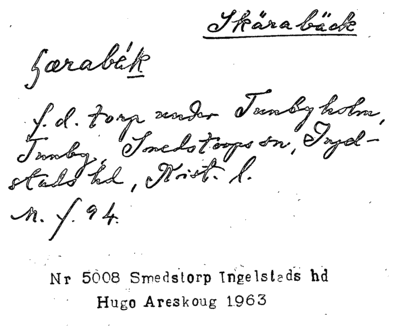 Skärabäck
Særabäk
f.d. torp under Tunbyholm,
Tunby, Smedstorps sn, Ingel-
stads hd, Krist. l.
M. f. 94.
Nr 5008 Smedstorp Ingelstads hd
Hugo Areskoug 1963